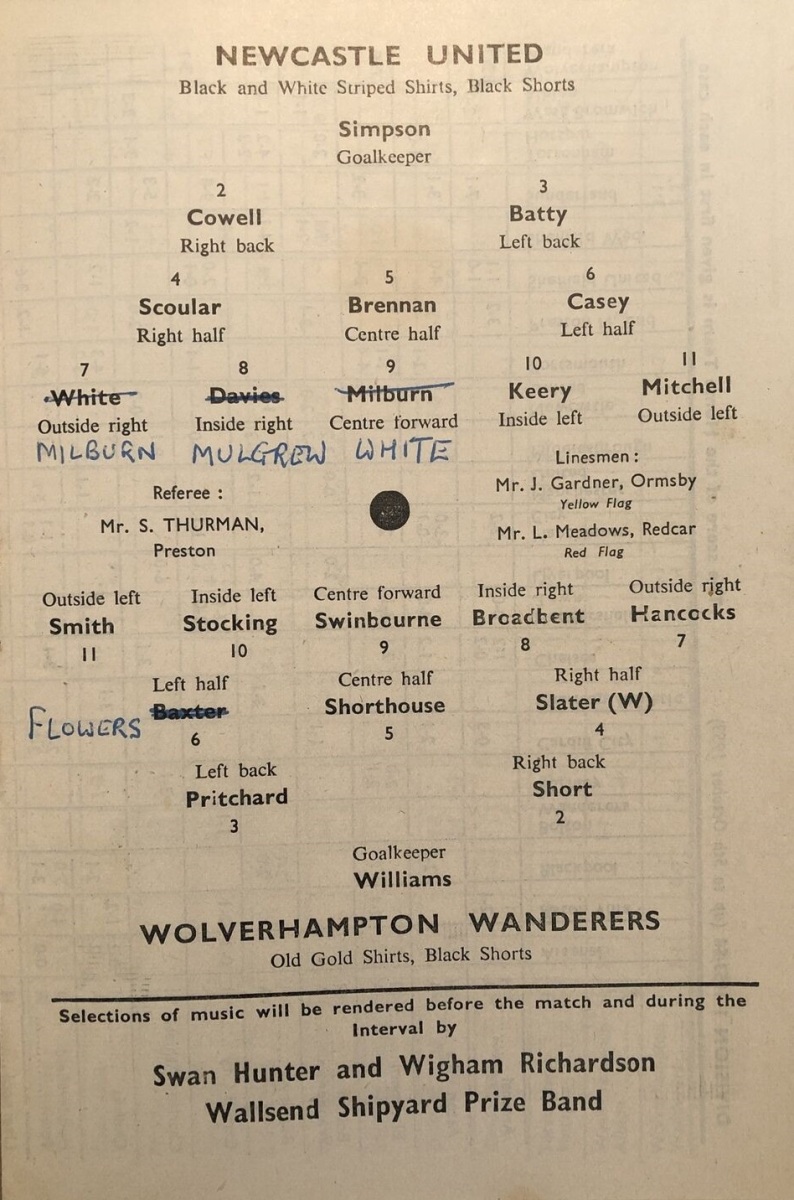 NEWCASTLE UNITED
Black and White Striped Shirts, Black Shorts
Simpson
Goalkeeper
2 3
Cowell Batty
Right back Left back
4 5 6
Scoular Brennan Casey
Right half Centre half Left half
7 8 9 10 11
White Davies Milburn Keery Mitchell
Outside right Inside right Centre forward Inside left Outside left
MILBURN MULGREW WHITE
Linesmen :
Mr. J. Gardner, Ormsby
Yellow Flag
Mr. L. Meadows, Redcar
Red Flag
Referee :
Mr. S. THURMAN,
Preston
Outside left Inside left Centre forward Inside right Outside right
Smith Stocking Swinbourne Broadbent Hancocks
11 10 9 8 7
Left half Centre half Right half
FLOWERS Baxter Shorthouse Slater (W)
6 5 4
Left back Right back
Pritchard Short
3 2
Goalkeeper
Williams
WOLVERHAMPTON WANDERERS
Old Gold Shirts, Black Shorts
Selections of music will be rendered before the match and during the
Interval by
Swan Hunter and Wigham Richardson
Wallsend Shipyard Prize Band